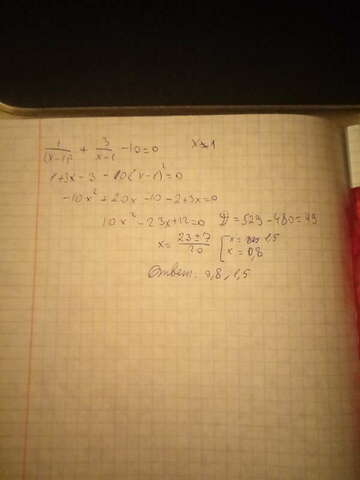 1/(x-1)² + 3/(x-1) - 10 = 0 x≠1
1+3x-3-10(x-1)²=0
-10x²+20x-10-2+3x=0
10x²-23x+12=0 D=529-480=49
x=(23±7)/20 [x=1,5
x=0,8
Ответ: 0,8; 1,5